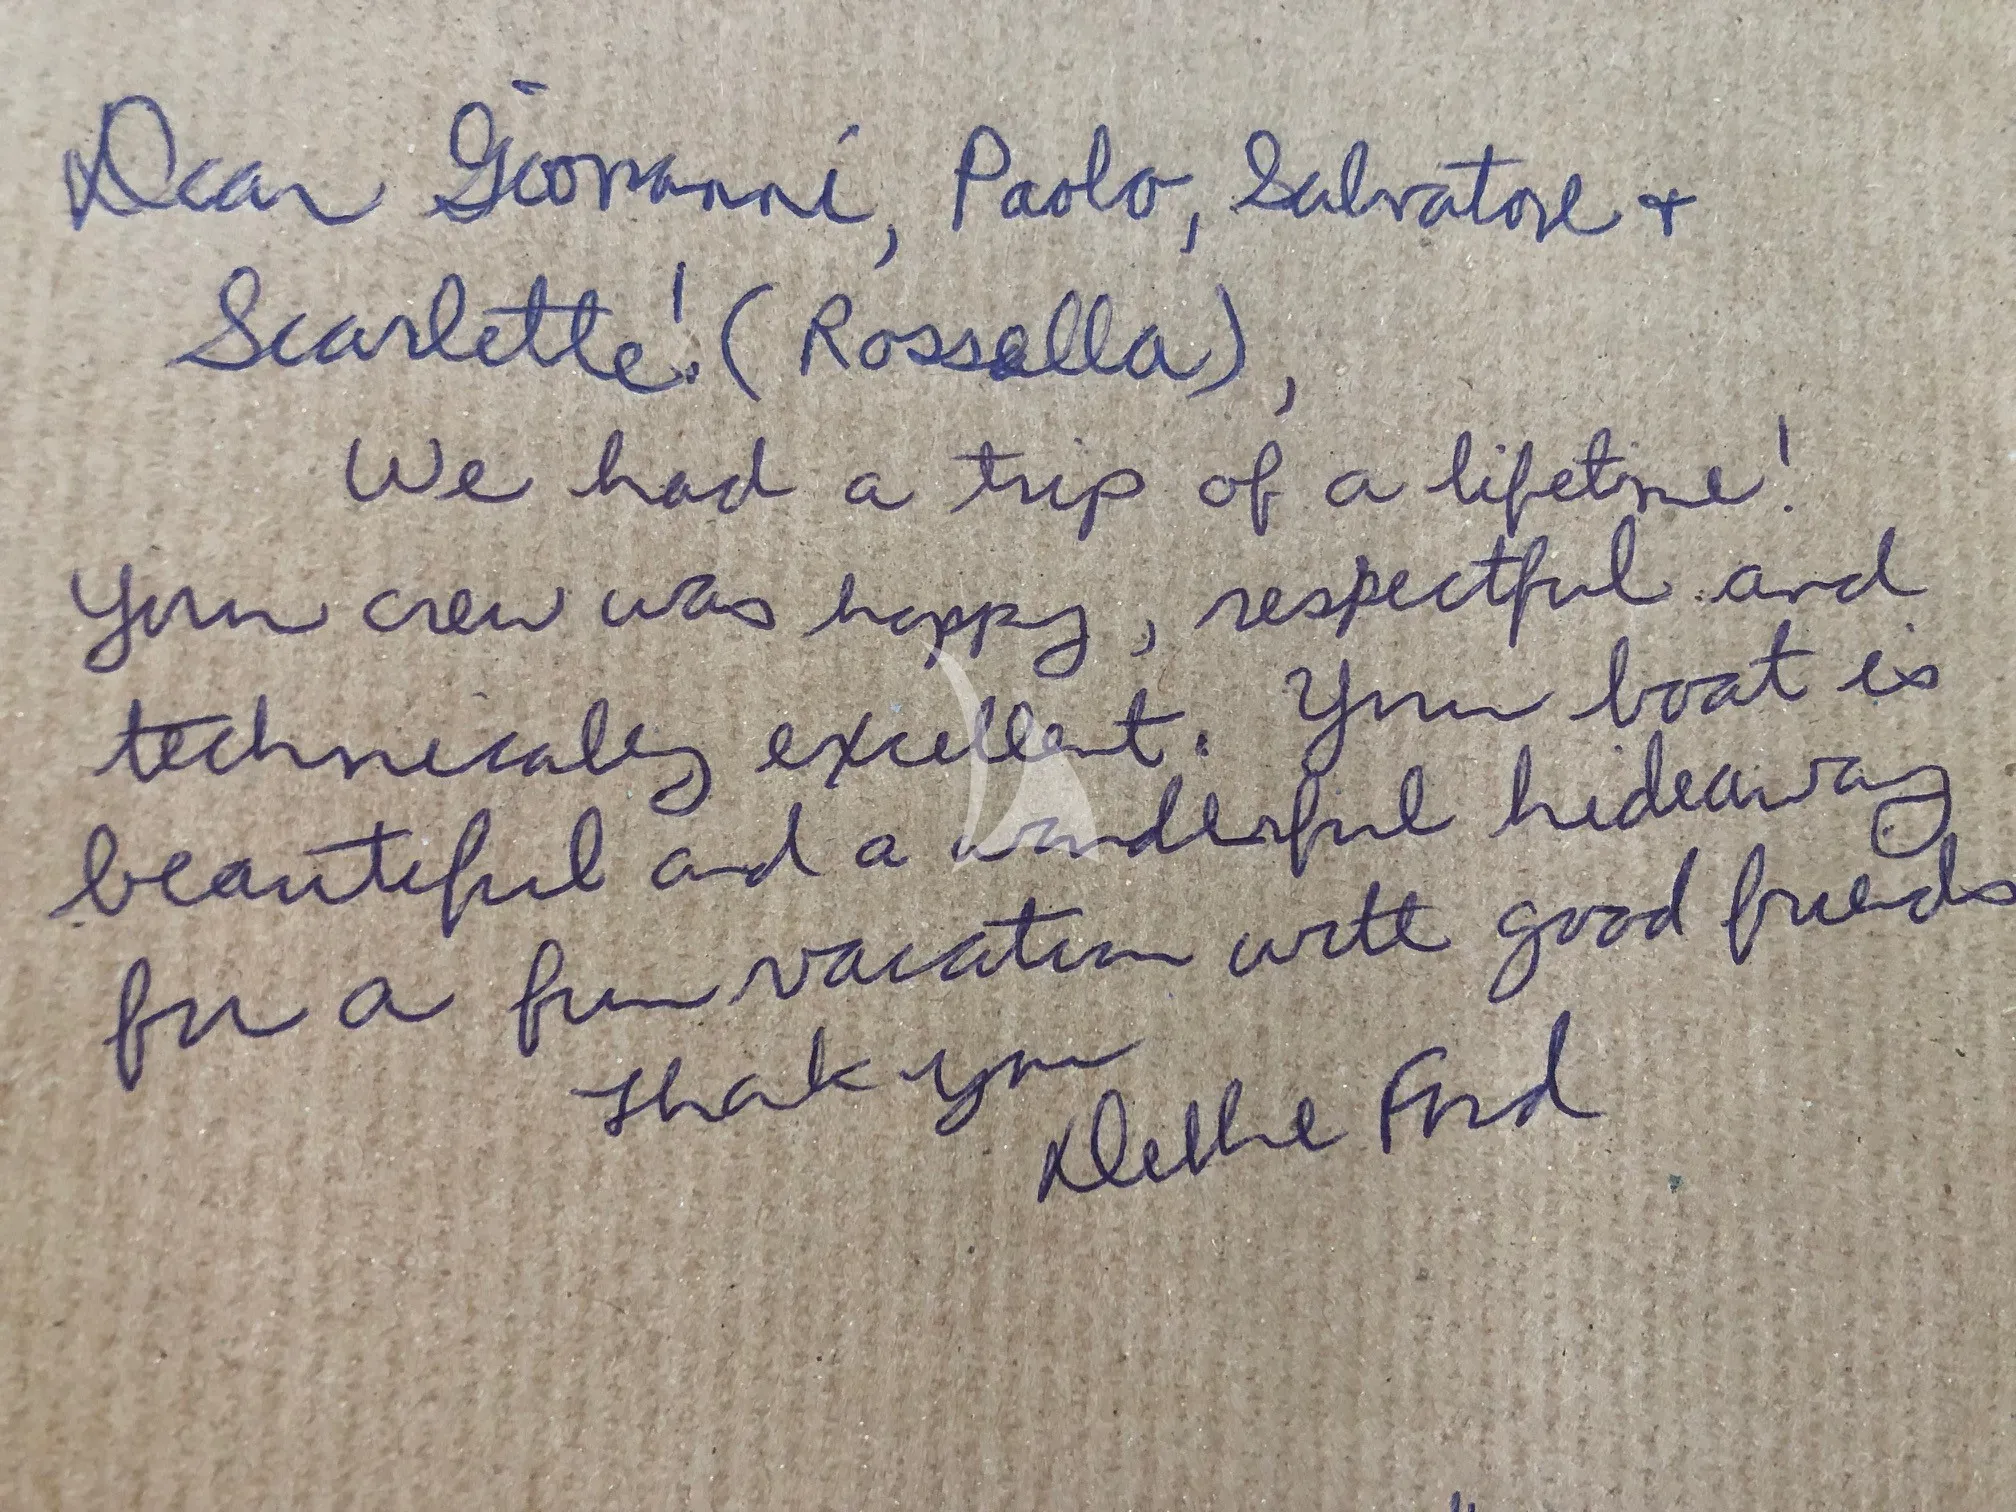 Dear Giovanni, Paolo, Salvatore +
Scarlette! (Rossella),
We had a trip of a lifetime!
Your crew was happy, respectful and
technically excellent. Your boat is
beautiful and a wonderful hideaway
for a fun vacation with good friends
Thank you
Debbie Ford